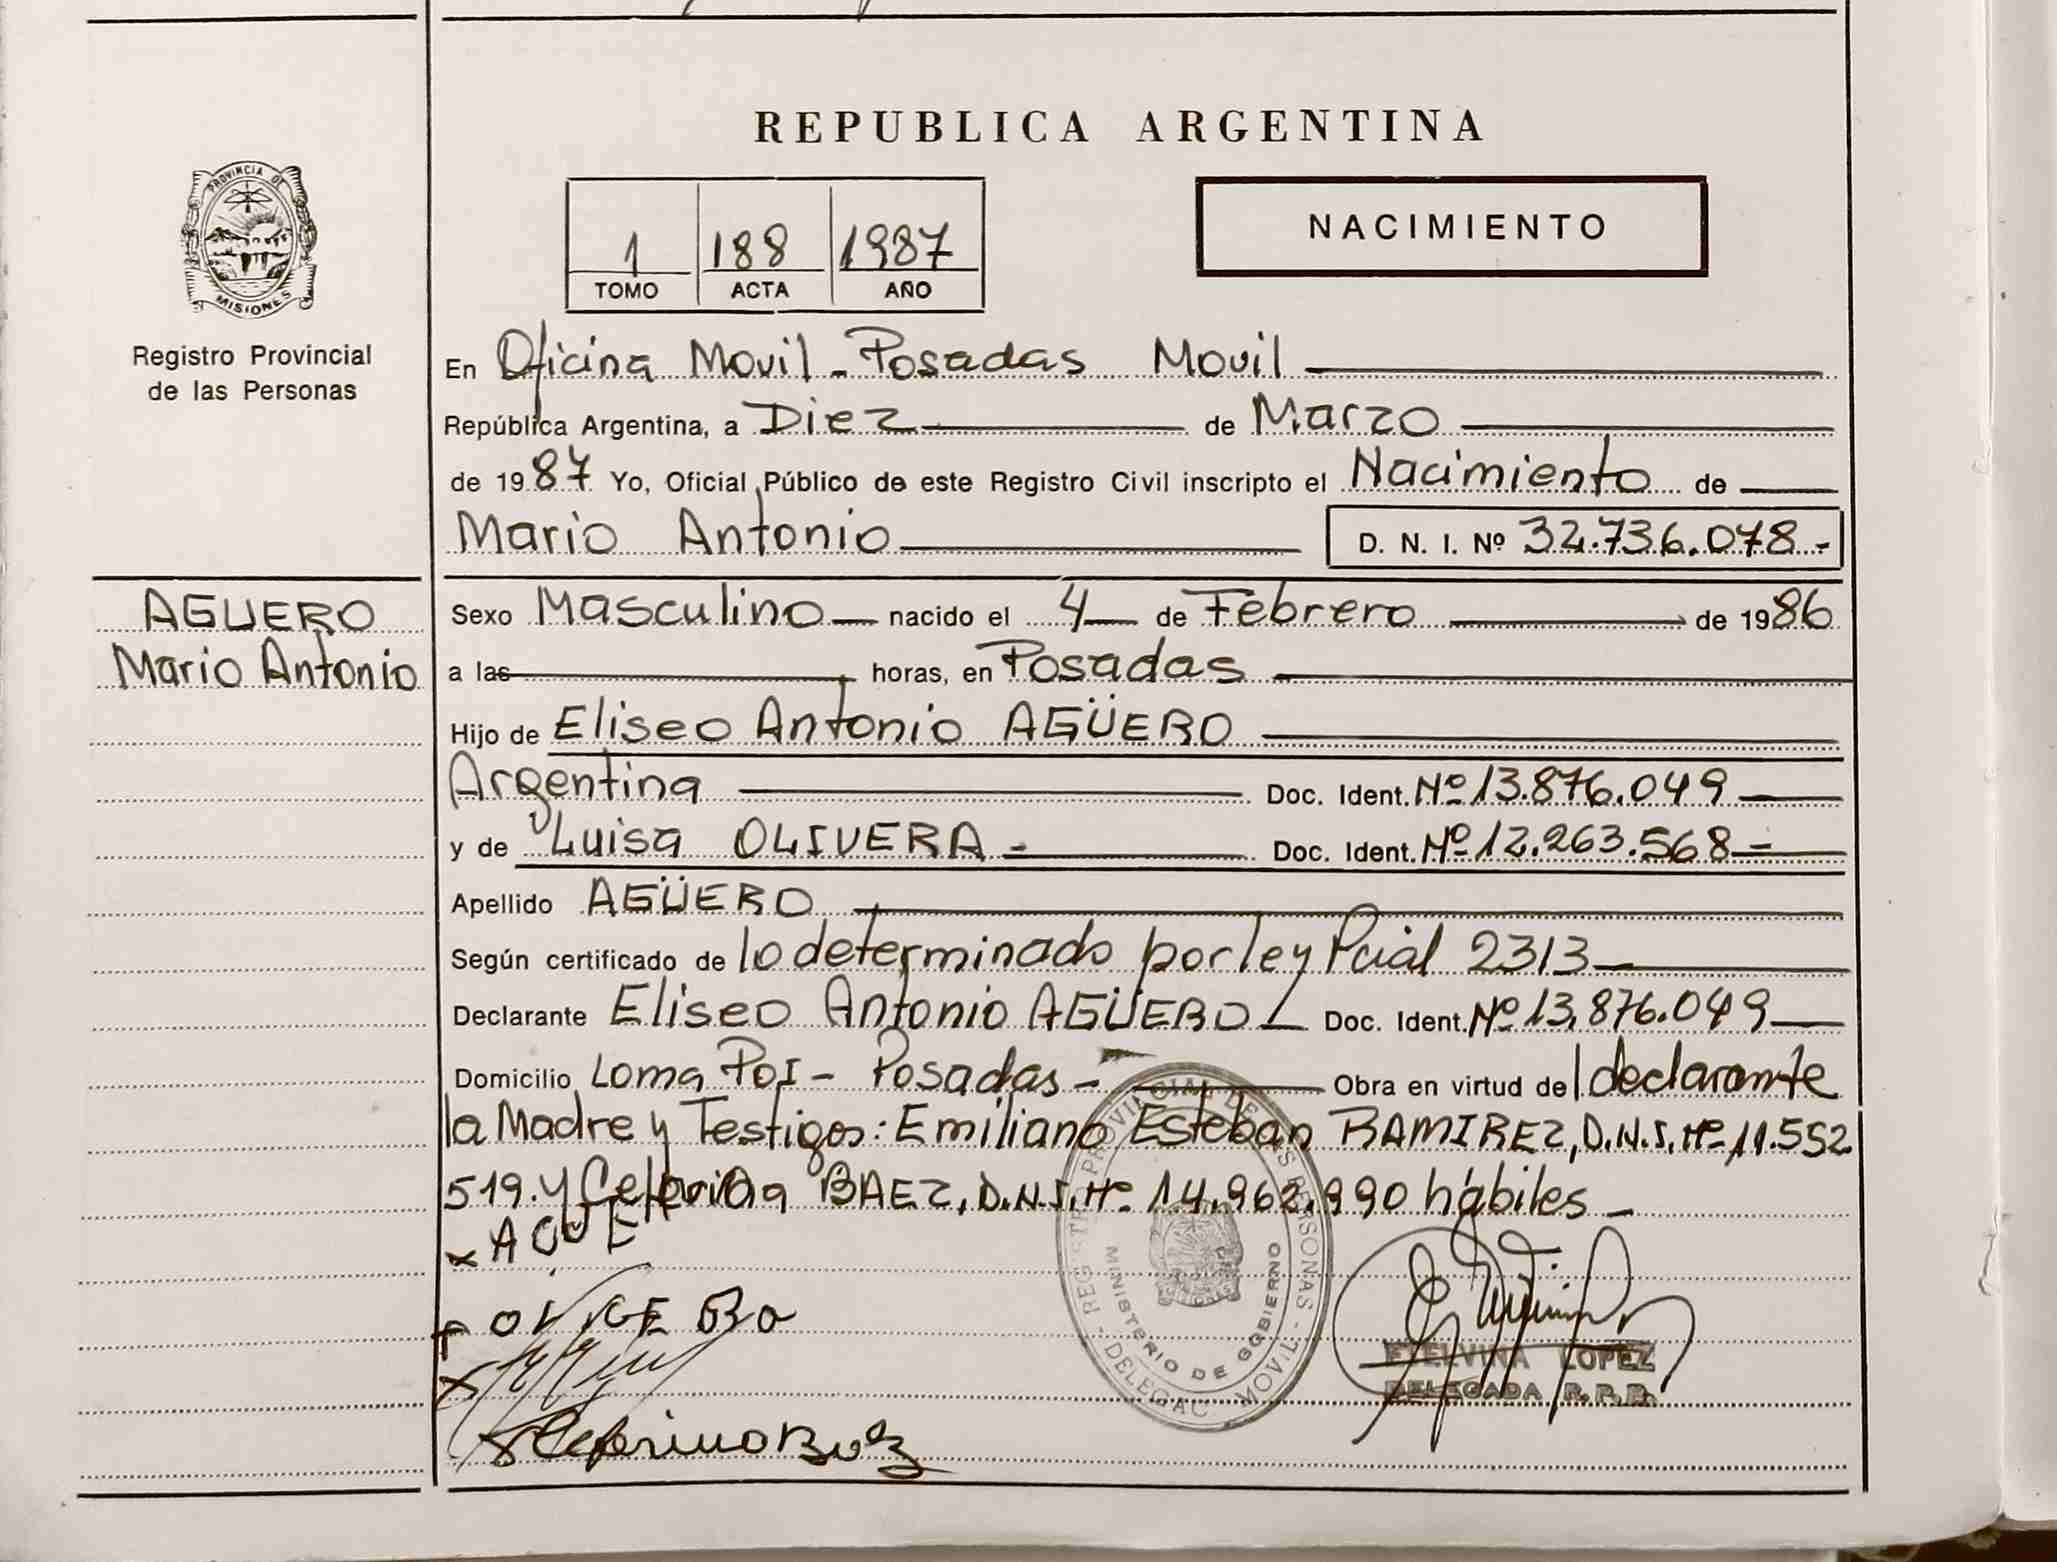 REPUBLICA ARGENTINA
PROVINCIA DE
MISIONES
Registro Provincial
de las Personas
1 188 1987
TOMO ACTA AÑO
NACIMIENTO
En Oficina Movil - Posadas Movil
República Argentina, a Diez de Marzo
de 1987 Yo, Oficial Público de este Registro Civil inscripto el Nacimiento de
Mario Antonio D. N. I. Nº 32.736.078-
AGUERO
Mario Antonio
Sexo Masculino nacido el 4 de Febrero de 1986
a las horas, en Posadas
Hijo de Eliseo Antonio AGÜERO
Argentina Doc. Ident. Nº 13.876.049
y de Luisa OLIVERA - Doc. Ident. Nº 12.263.568
Apellido AGÜERO
Según certificado de lo determinado por ley Pcial 2313
Declarante Eliseo Antonio AGÜERO Doc. Ident. Nº 13.876.049
Domicilio Loma Poi - Posadas - Obra en virtud del declarante
la Madre y Testigos: Emiliano Esteban RAMIREZ, D.N.I. Nº 11.552
519. y BAEZ, D.N.I. Nº 14.962.990 hábiles -
REGISTRO PROVINCIAL DE LAS PERSONAS
MINISTERIO DE GOBIERNO
DELEGAC MOVIL
ETELVINA LOPEZ
DELEGADA R.P.P.